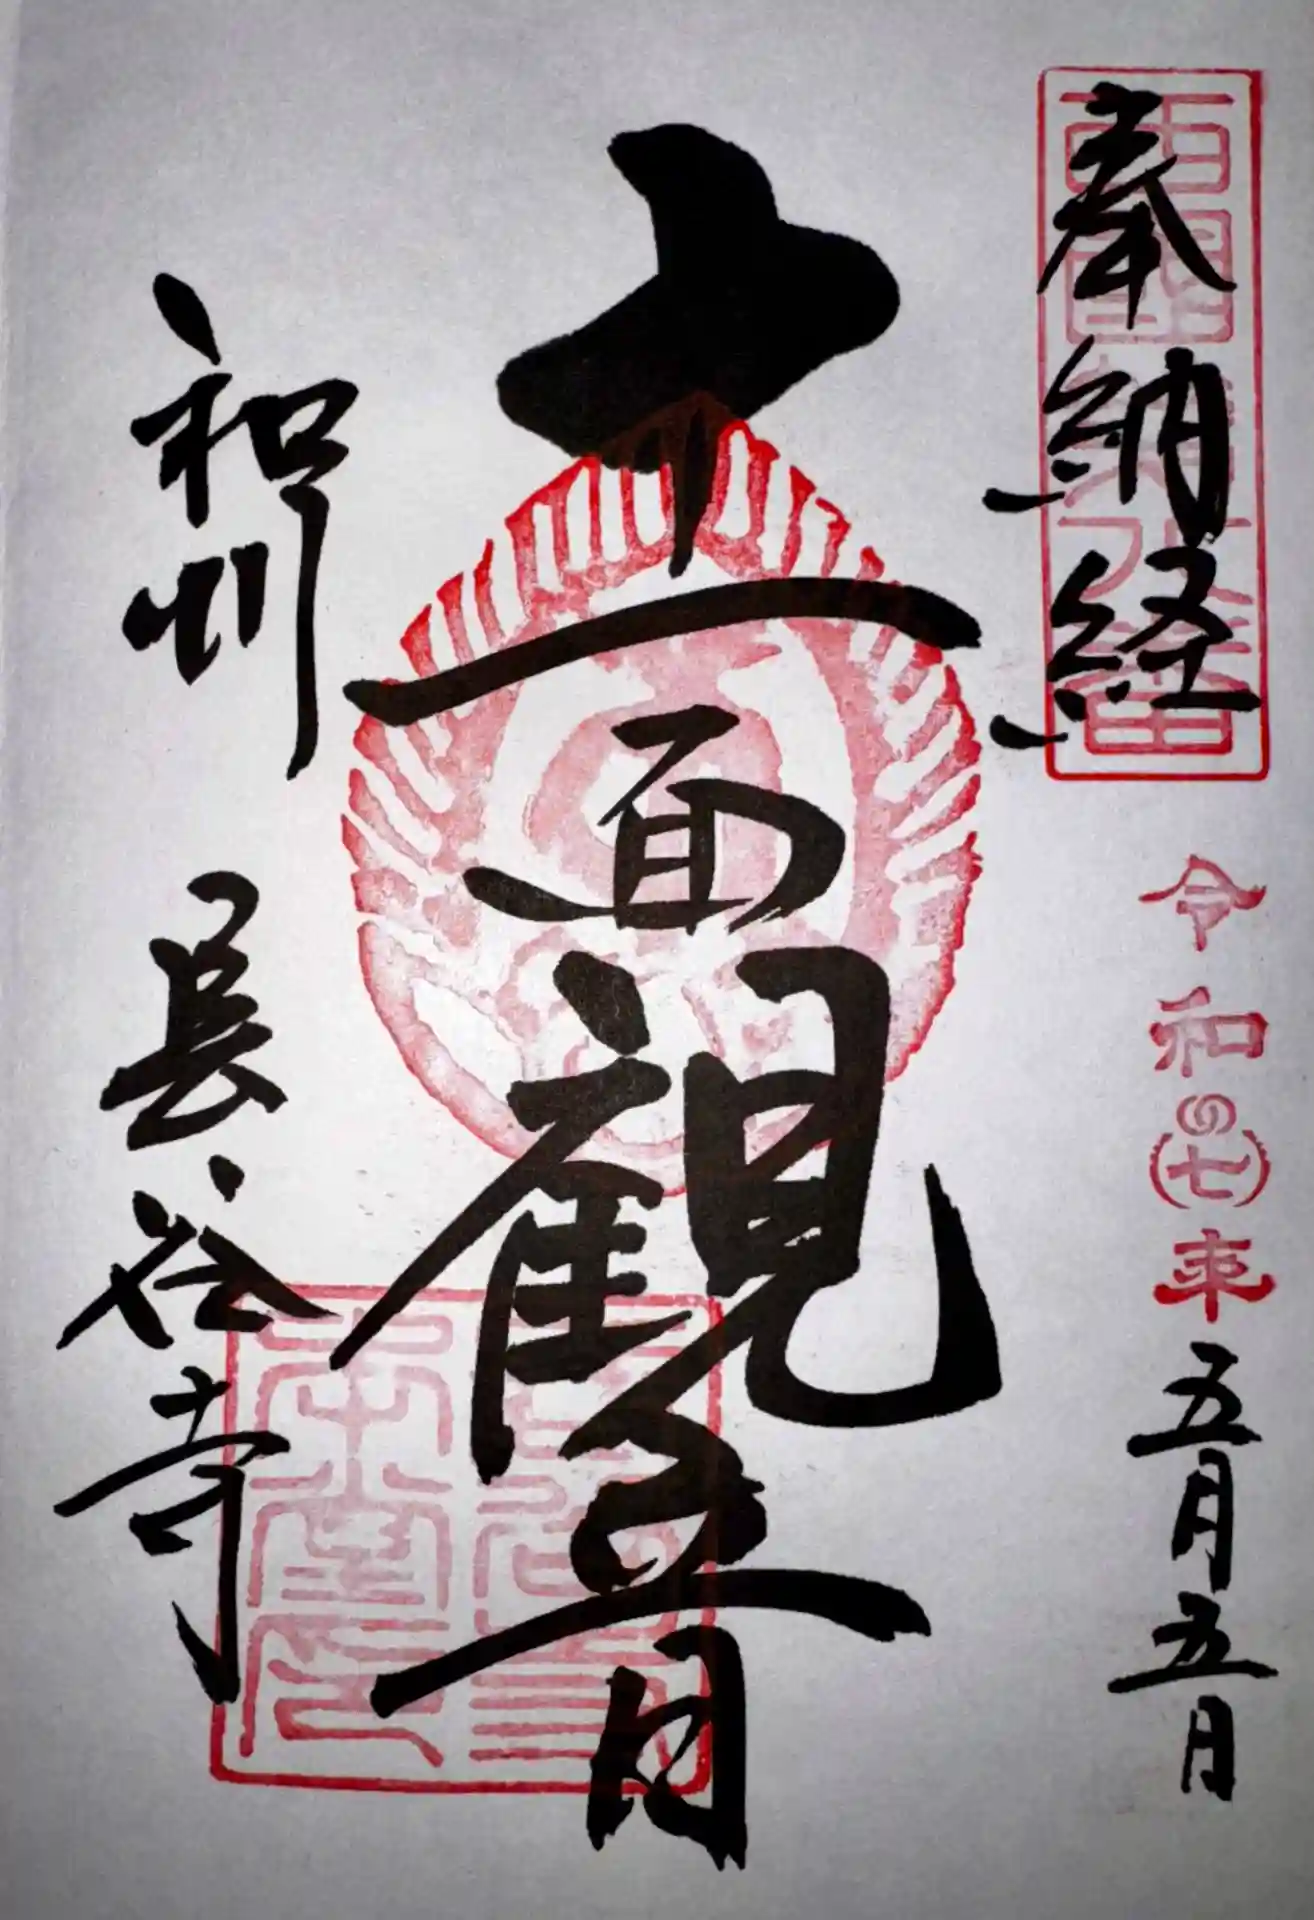 西國第八番
奉納経
令和七年五月五日
十一面観音
和州 長谷寺